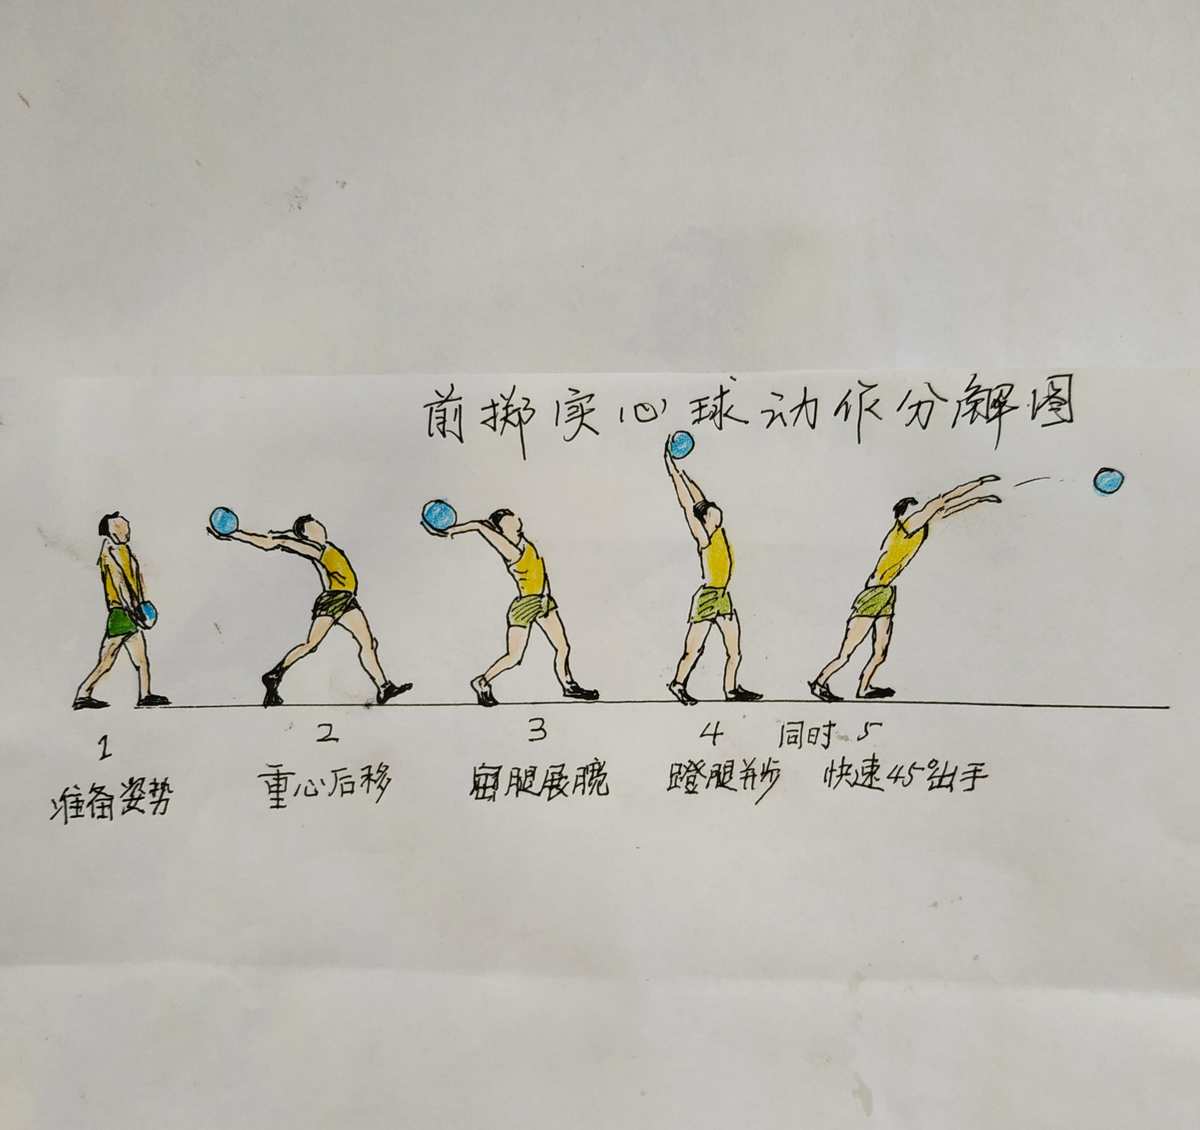 前掷实心球动作分解图
1 2 3 4 同时 5
准备姿势 重心后移 腿展 蹬腿并步 快速45°出手